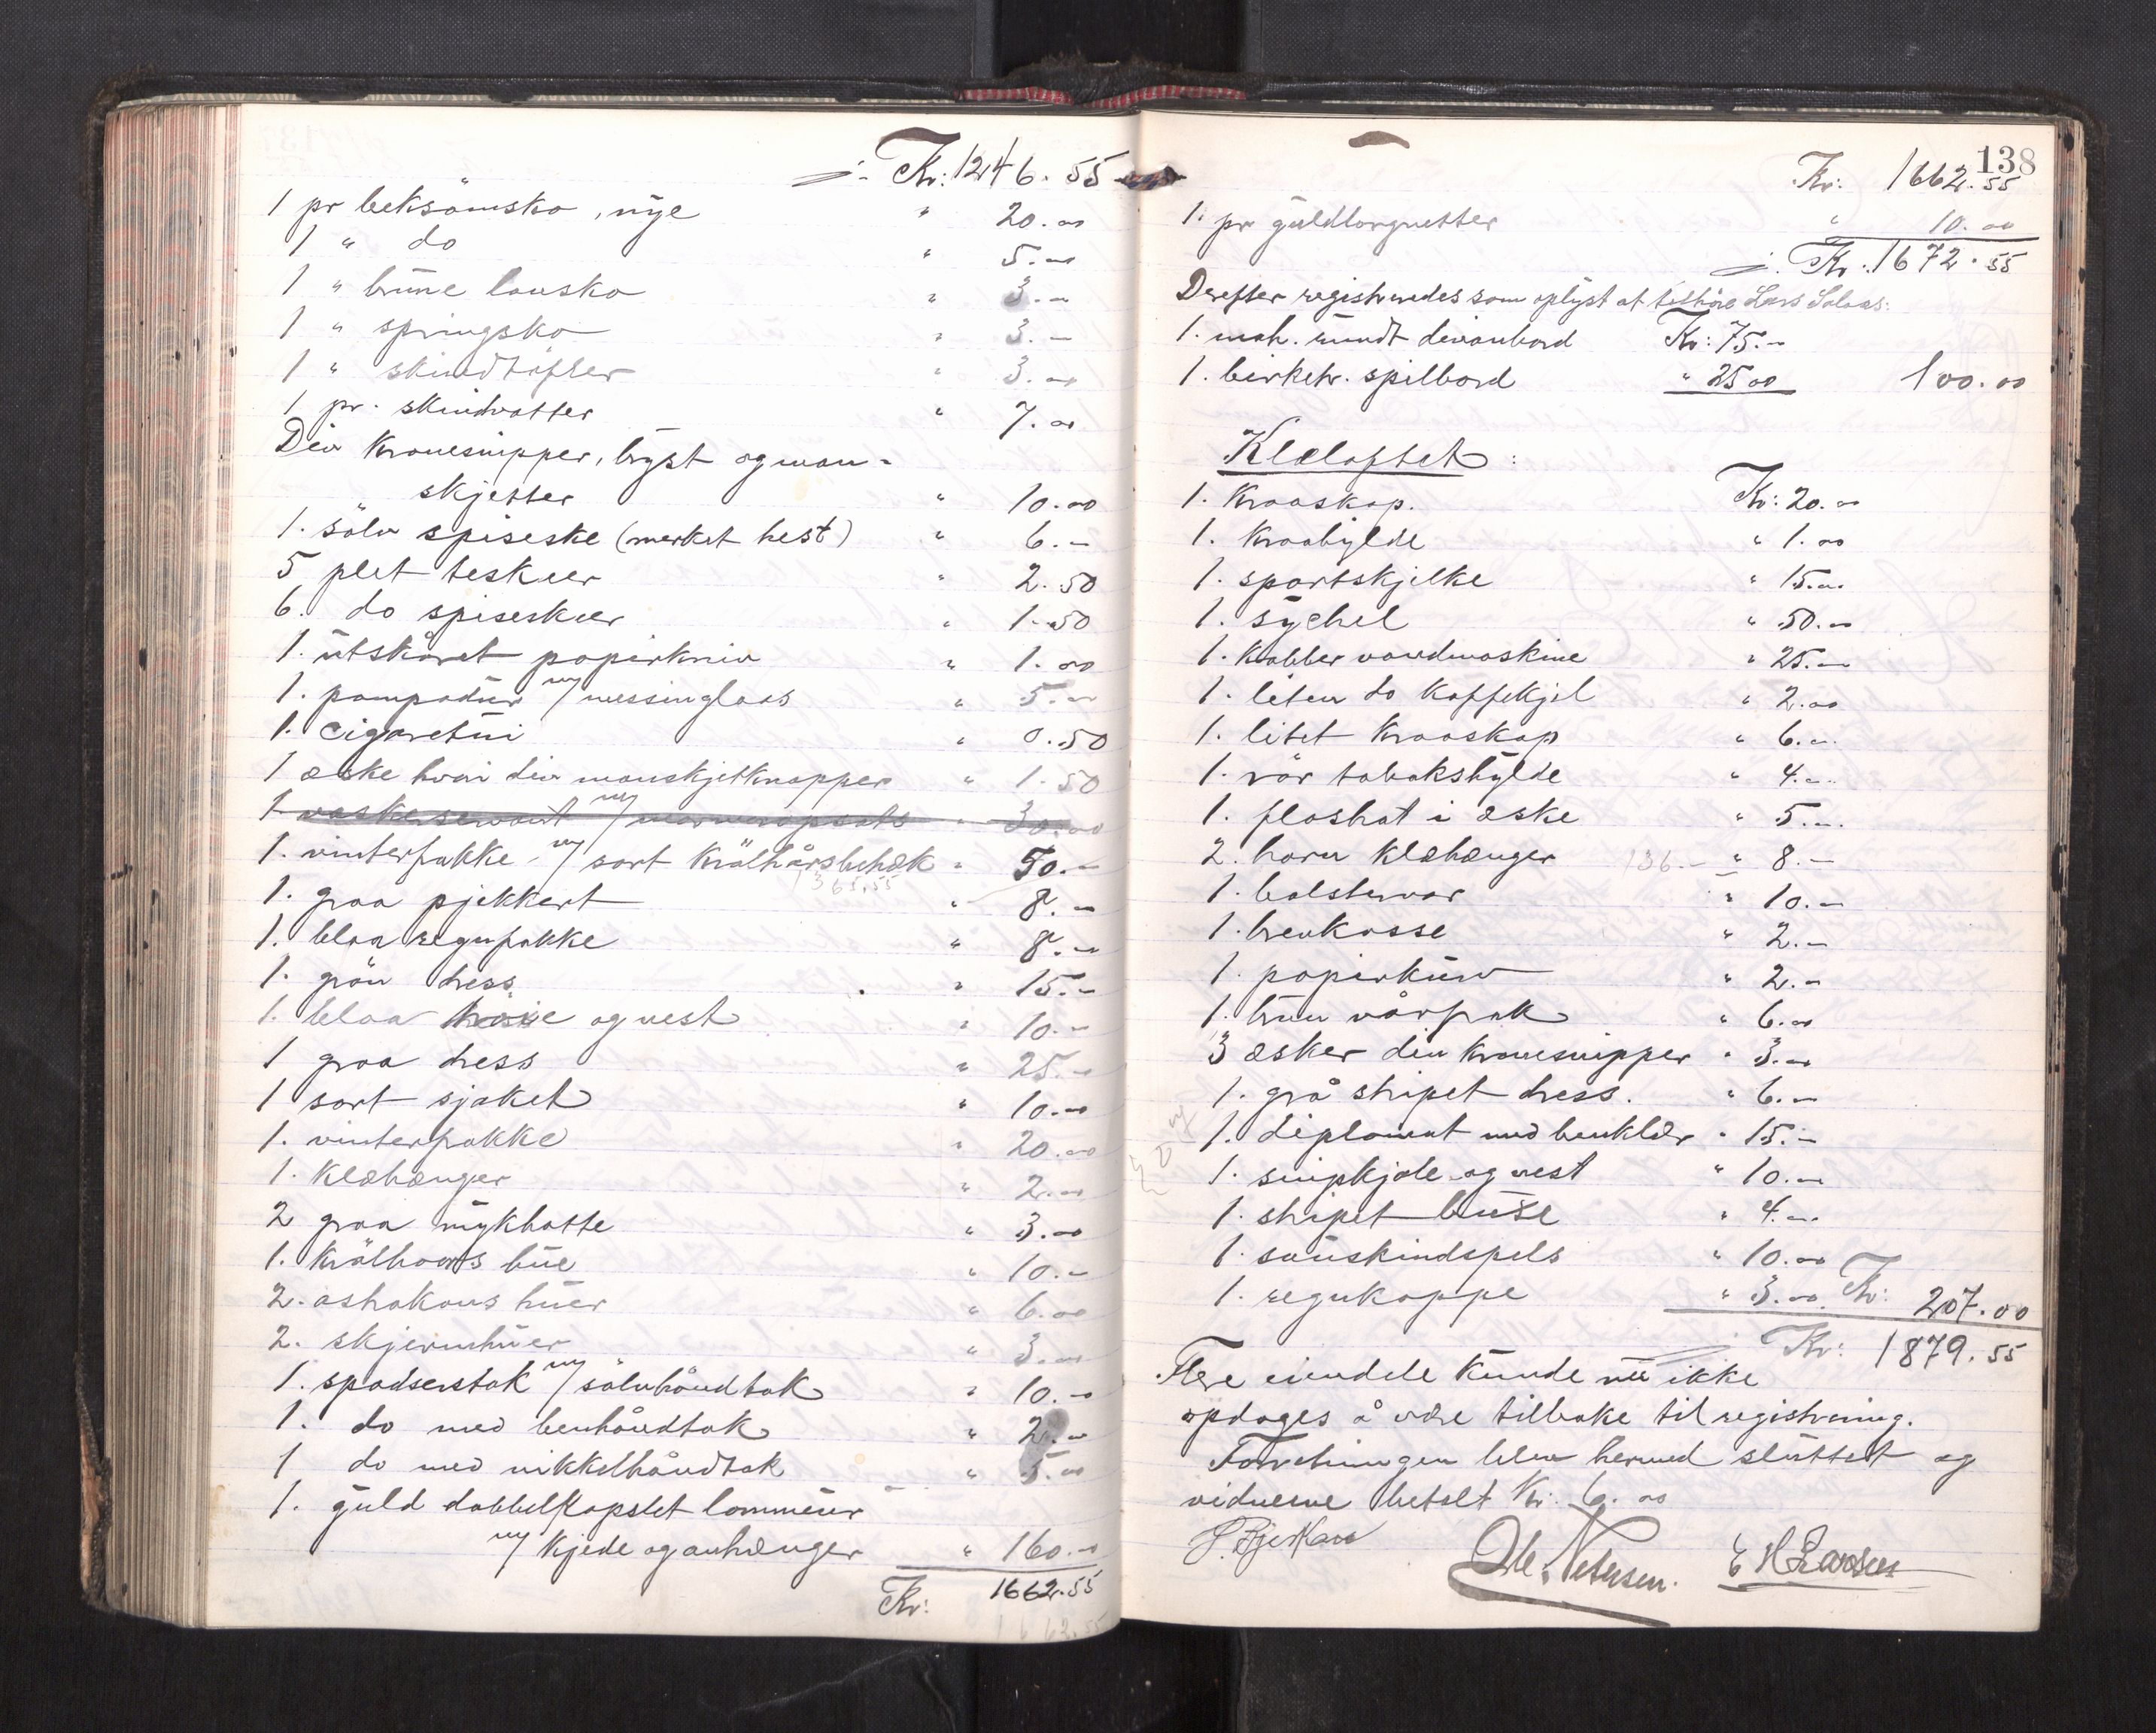 Kr: 1246.55
1 pr beksömsko, nÿe " 20.00
1 " do " 5.00
1 " brüne lausko " 3.–
1 " springsko " 3.–
1 " skindtöfler " 3.00
1 pr. skindvotter " 7.00
Div Kravesnipper, brÿst og man-
skjetter " 10.00
1. sölv spiseske (merket hest) " 6.–
5 plet teskeer " 2.50
6. do spiseskeer " 1.50
1. ütskåret papirkniv " 1.00
1. pompadür m/ messinglaas " 5.00
1. Cigaretüi " 0.50
1 æske hvori div manskjetknapper " 1.50
1 vaskeservant m/ marmoropsats " 30.00
1. vinterfrakke m/ sort Krölhårsbesætk " 50.–
1365.55
1. graa pjekkert " 8.–
1. blaa regnfrakke " 8.–
1. grön dress " 15.–
1. blaa trøie og vest " 10.–
1 graa dress " 25.–
1 sort sjaket " 10.00
1. vinterfrakke " 20.00
1. Klæhænger " 2.00
2 graa mÿkhatte " 3.00
1. Krölhaars hüe " 10.–
2. astrakans hüer " 6.00
2. skjermhüer " 3.00
1. spadserstok m/ sölvhåndtak " 10.–
1. do med benhåndtak " 2.–
1 do med nikkelhåndtak " 5.00
1. guld dobbelkapslet lommeür
m/ Kjede og anhænger " 160.–
Kr: 1662.55
1662.55
138
Kr: 1662.55
1. pr güldlorgnetter " 10.00
Kr: 1672.55
Derefter registreredes som oplÿst at tilhöre Lars
1. mah. rundt divanbord Kr: 75.–
1. birketr. spilbord " 25 00 100.00
Klæloftet:
1. Kraaskap. Kr: 20.00
1. Kraahÿlde " 1.00
1. sportskjelke " 15.00
1. sÿchel " 50.00
1. Kobber vandmaskine " 25.–
1. liten do Kaffekjel " 2.00
1. litet Kraaskap " 6.–
1. rör tobakshÿlde " 4.–
1. floshat i æske " 5.–
2. horn klæhænger 136.– " 8.–
1. bolstervar " 10.–
1. brevkasse " 2.–
1. papirkürv " 2.–
1. brün vårfrak " 6.00
3 æsker div Kravesnipper " 3.00
1. grå stripet dress. " 6.–
1. diplomat med benklær " 15.–
1. snipkjole og vest " 10.00
1. stripet buxe " 4.–
1. saüskindspels " 10.00
1. regnkappe " 3.00 Kr: 207.00
Kr: 1879.55
Flere eiendele Künde nü ikke
opdages å være tilbake til registrering.
Forretningen blev hermed slüttet og
vidnerne betalt Kr: 6.00
Ole Petersen.